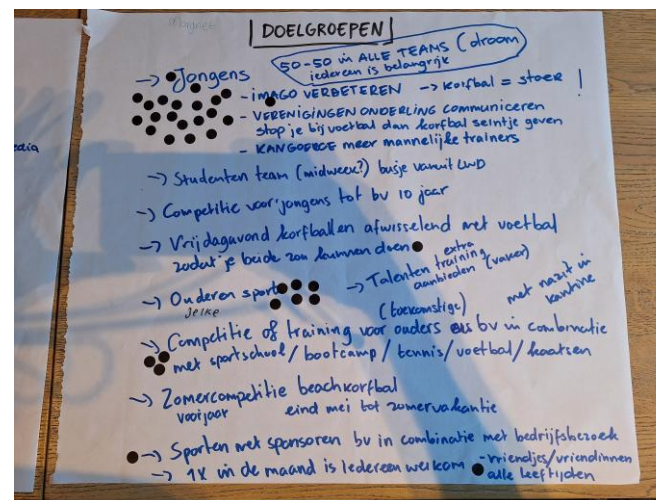 Margriet
DOELGROEPEN
50-50 in ALLE TEAMS (droom
iedereen is belangrijk
-> Jongens
- iMAGO VERBETEREN -> korfbal = stoer !
- VERENIGINGEN ONDERLING communiceren
stop je bij voetbal dan korfbal seintje geven
- KANGOEROE meer mannelijke trainers
-> Studenten team (midweek?) busje vanuit LWD
-> Competitie voor jongens tot bv 10 jaar
-> Vrijdagavond korfballen afwisselend met voetbal
zodat je beide zou kunnen doen
-> Ouderen sport
Jelke
-> Talenten extra
training
aanbieden (vaker)
(toekomstige)
met nazit in
kantine
-> Competitie of training voor ouders bv in combinatie
met sportschool/bootcamp/tennis/voetbal/kaatsen
-> Zomercompetitie beachkorfbal
voorjaar eind mei tot zomervakantie
-> Sporten met sponsoren bv in combinatie met bedrijfsbezoek
-> 1x in de maand is Iedereen welkom
- vriendjes/vriendinnen
alle leeftijden
edia